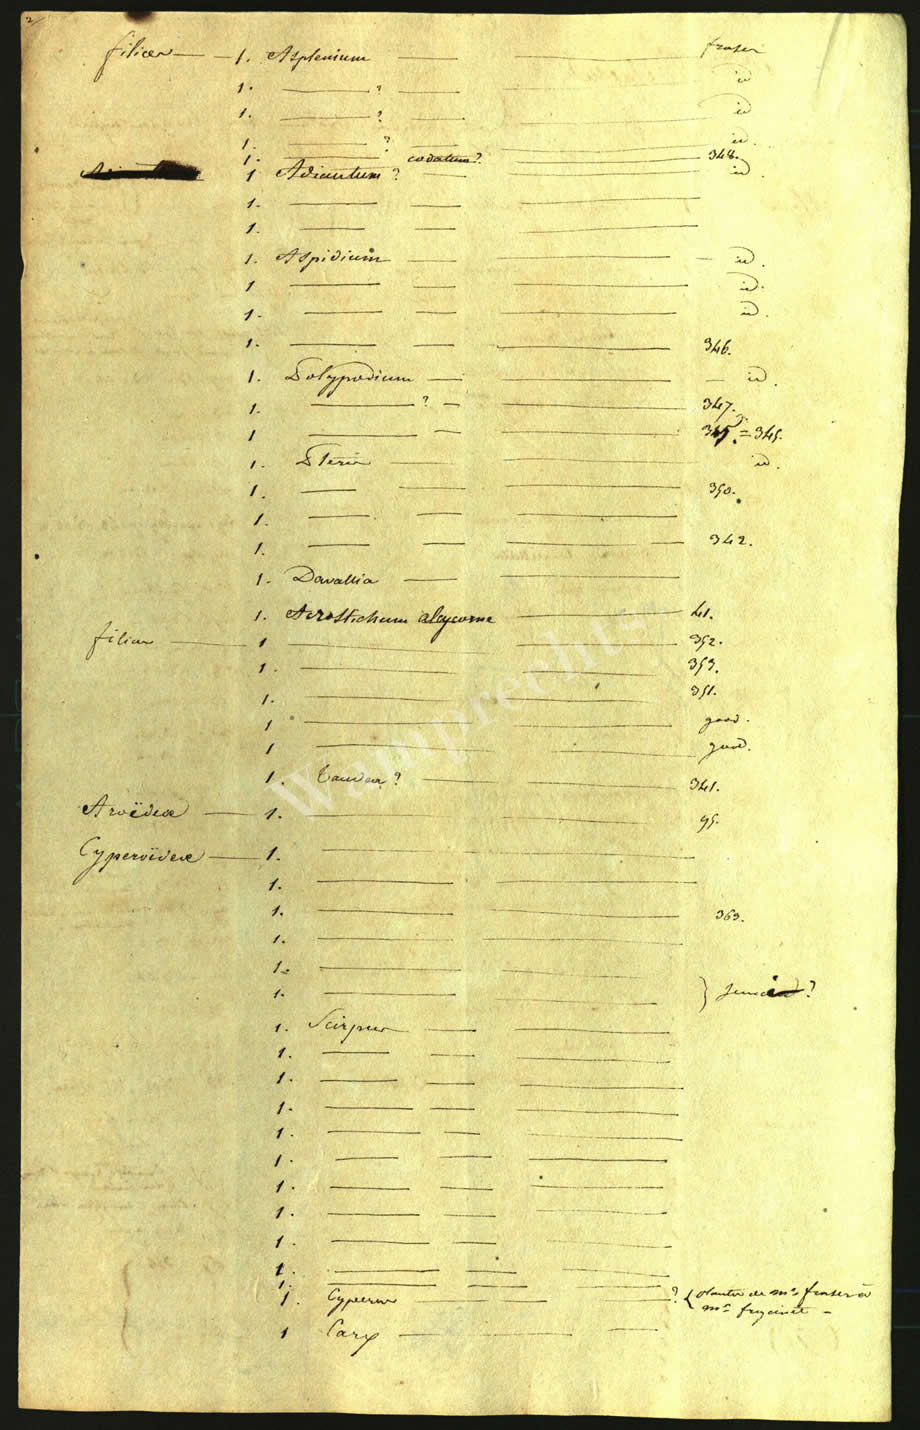 2/
filices — 1. Asplenium — — fraser
1. — ? — — id
1. — ? — — id
1. — ? — — id.
1. — codatum? — 348.
1 Adiantum ? — — id.
1. — — —
1. — — —
1. Aspidium — — — id.
1 — — — id.
1. — — — id.
1. — — — 346.
1. Polypodium — — — id.
1. — ? — — 347.
1 — — — = 345.
1. Pteris — — id.
1. — — — 350.
1. — — —
1. — — — 342.
1. Davallia — —
1. Acrostichum alcycorne — 41.
filices — 1 — — 352.
1. — — 353.
1. — — 351.
1 — — good.
1 — — good.
1. ? — — 341.
Aroïdeæ — 1. — — 95.
Cyperoïdeæ — 1. — —
1. — —
1. — — 363.
1. — —
1. — —
1. — — } ?
1. Scirpus — —
1. — — —
1. — — —
1. — — —
1. — — —
1. — — —
1. — — —
1. — — —
1. — — —
1. — — —
1. — — —
1. Cyperus — — ? { plantes de mr fraser à
mr freycinet —
1 Carex — — —
Wamprechts